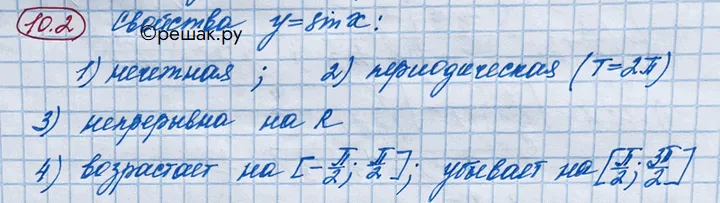 10.2 Свойства y=sinx:
©решак.ру
1) нечетная ; 2) периодическая (T=2π)
3) непрерывна на R
4) возрастает на [-π/2; π/2]; убывает на [π/2; 3π/2]